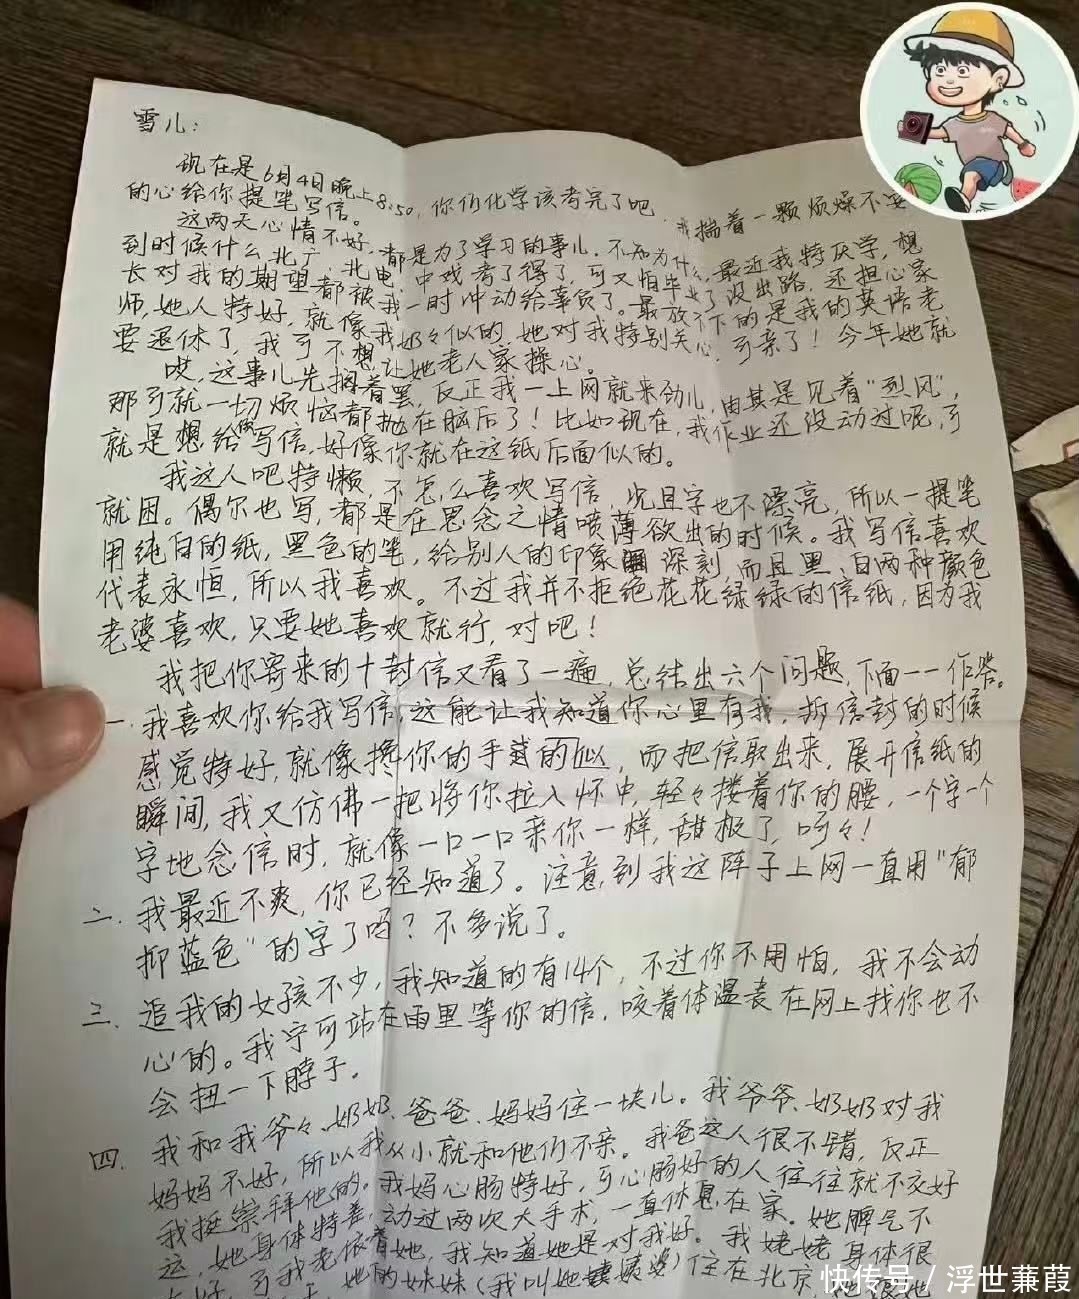 雪儿：
现在是6月4日晚上8:50，你们化学该考完了吧，我揣着一颗烦燥不安
的心给你提笔写信。
这两天心情不好，都是为了学习的事儿。不知为什么，最近我特厌学，想
到时候什么北广、北电、中戏考了得了，可又怕毕业了没出路，还担心家
长对我的期望都被我一时冲动给辜负了。最放不下的是我的英语老
师，她人特好，就像我奶々似的，她对我特别关心，可亲了！今年她就
要退休了，我可不想让她老人家操心。
哎，这事儿先搁着罢，反正我一上网就来劲儿，由其是见着“烈风”，
那可就一切烦恼都抛在脑后了！比如现在，我作业还没动过呢，可
就是想给你写信，好像你就在这纸后面似的。
我这人吧特懒，不怎么喜欢写信，况且字也不漂亮，所以一提笔
就困。偶尔也写，都是在思念之情喷薄欲出的时候。我写信喜欢
用纯白的纸，黑色的笔，给别人的印象深刻，而且黑、白两种颜色
代表永恒，所以我喜欢。不过我并不拒绝花花绿绿的信纸，因为我
老婆喜欢，只要她喜欢就行，对吧！
我把你寄来的十封信又看了一遍，总结出六个问题，下面一一作答。
一.我喜欢你给我写信，这能让我知道你心里有我，拆信封的时候
感觉特好，就像搀你的手似的，而把信取出来，展开信纸的
瞬间，我又仿佛一把将你拉入怀中，轻々搂着你的腰，一个字一个
字地念信时，就像一口一口亲你一样，甜极了，呵々！
二.我最近不爽，你已经知道了。注意到我这阵子上网一直用“郁
抑蓝色”的字了吗？不多说了。
三.追我的女孩不少，我知道的有14个，不过你不用怕，我不会动
心的。我宁可站在雨里等你的信，咬着体温表在网上找你也不
会扭一下脖子。
四.我和我爷々、奶奶、爸爸、妈妈住一块儿。我爷爷、奶奶对我
妈妈不好，所以我从小就和他们不亲。我爸这人很不错，反正
我挺崇拜他的。我妈心肠特好，可心肠好的人往往就不交好
运，她身体特差，动过两次大手术，一直休息在家。她脾气不
好，可我老依着她，我知道她是对我好。我姥姥身体很
她的妹妹（我叫她姨婆）住在北京，
快传号 / 浮世蒹葭